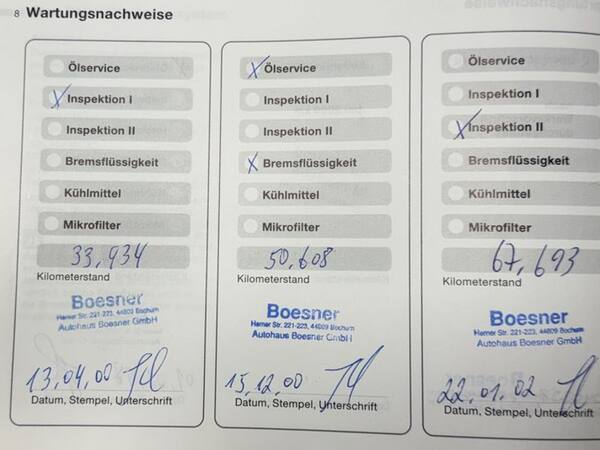 8 Wartungsnachweise
Ölservice
X Inspektion I
Inspektion II
Bremsflüssigkeit
Kühlmittel
Mikrofilter
33,934
Kilometerstand
Boesner
Herner Str. 221-223, 44809 Bochum
Autohaus Boesner GmbH
13,04,00
Datum, Stempel, Unterschrift
X Ölservice
Inspektion I
Inspektion II
X Bremsflüssigkeit
Kühlmittel
Mikrofilter
50,608
Kilometerstand
Boesner
Herner Str. 221-223, 44809 Bochum
Autohaus Boesner GmbH
15,12,00
Datum, Stempel, Unterschrift
Ölservice
Inspektion I
X Inspektion II
Bremsflüssigkeit
Kühlmittel
Mikrofilter
67,693
Kilometerstand
Boesner
Herner Str. 221-223, 44809 Bochum
Autohaus Boesner GmbH
22,01,02
Datum, Stempel, Unterschrift